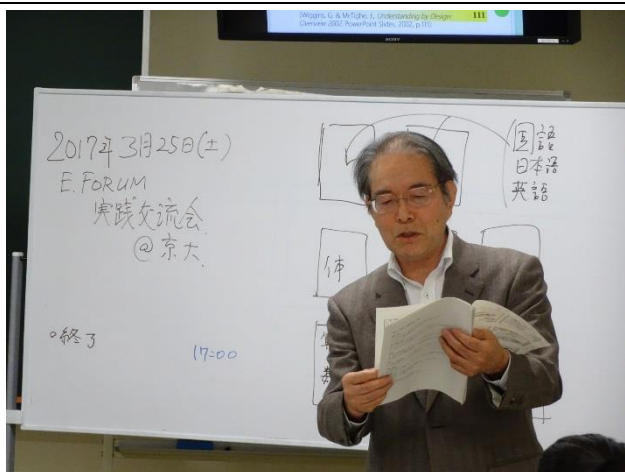 (Wiggins, G. & McTighe, J., Understanding by Design:
Overview 2002, PowerPoint Slides, 2002, p.111)
111
SONY
2017年3月25日(土)
E.FORUM
実践交流会
@京大
。終了
17:00
国語
日本語
英語
体
算
数